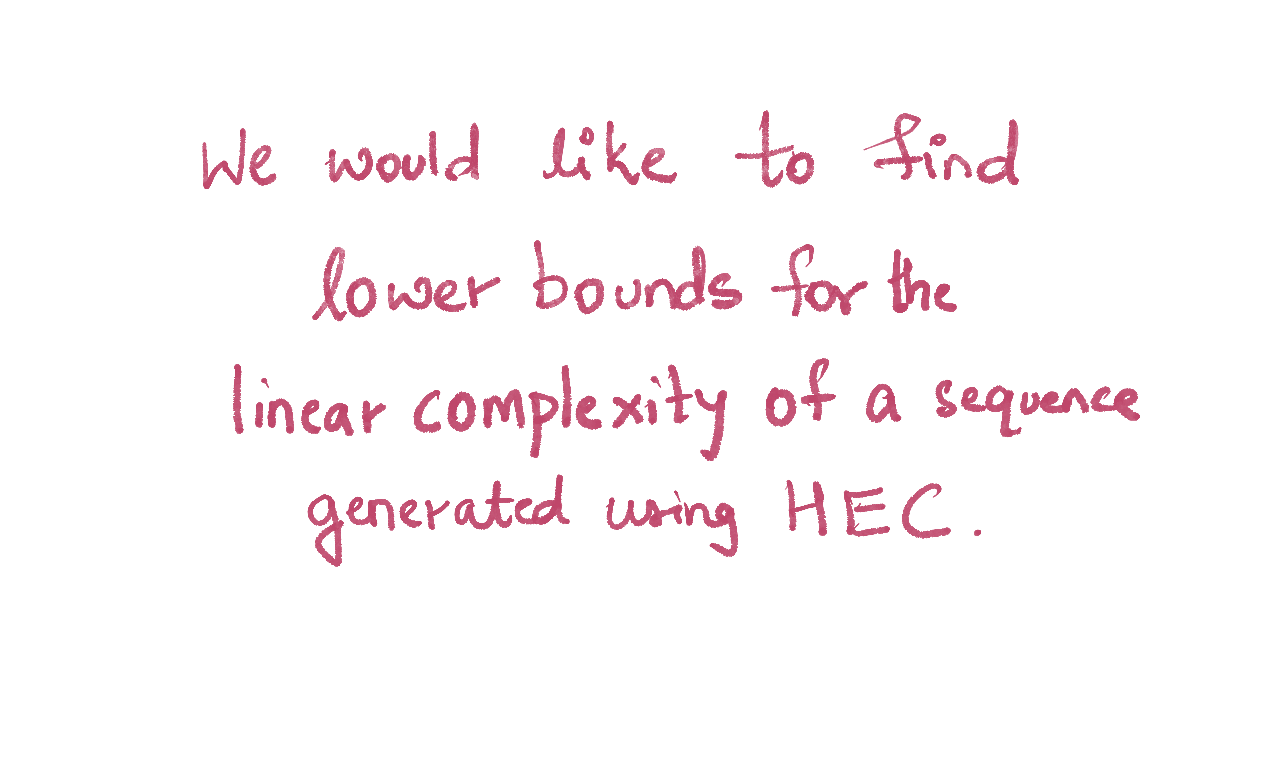 We would like to find
lower bounds for the
linear complexity of a sequence
generated using HEC.